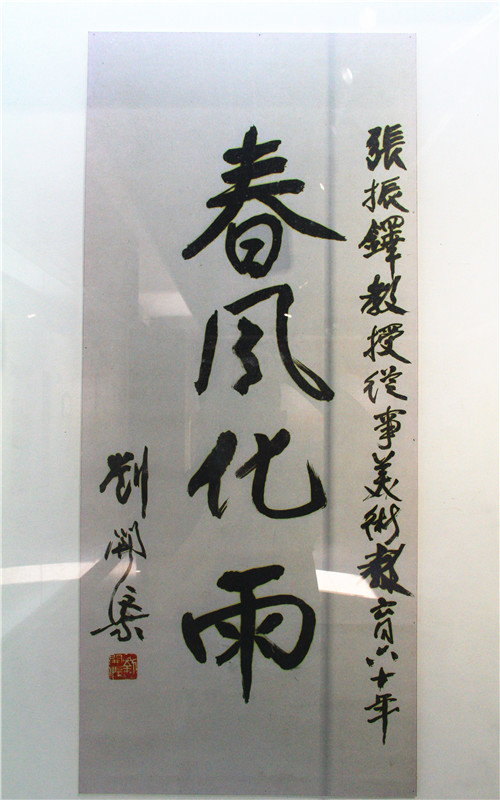 張振鐸教授從事美術教育六十年
春風化雨
劉開渠